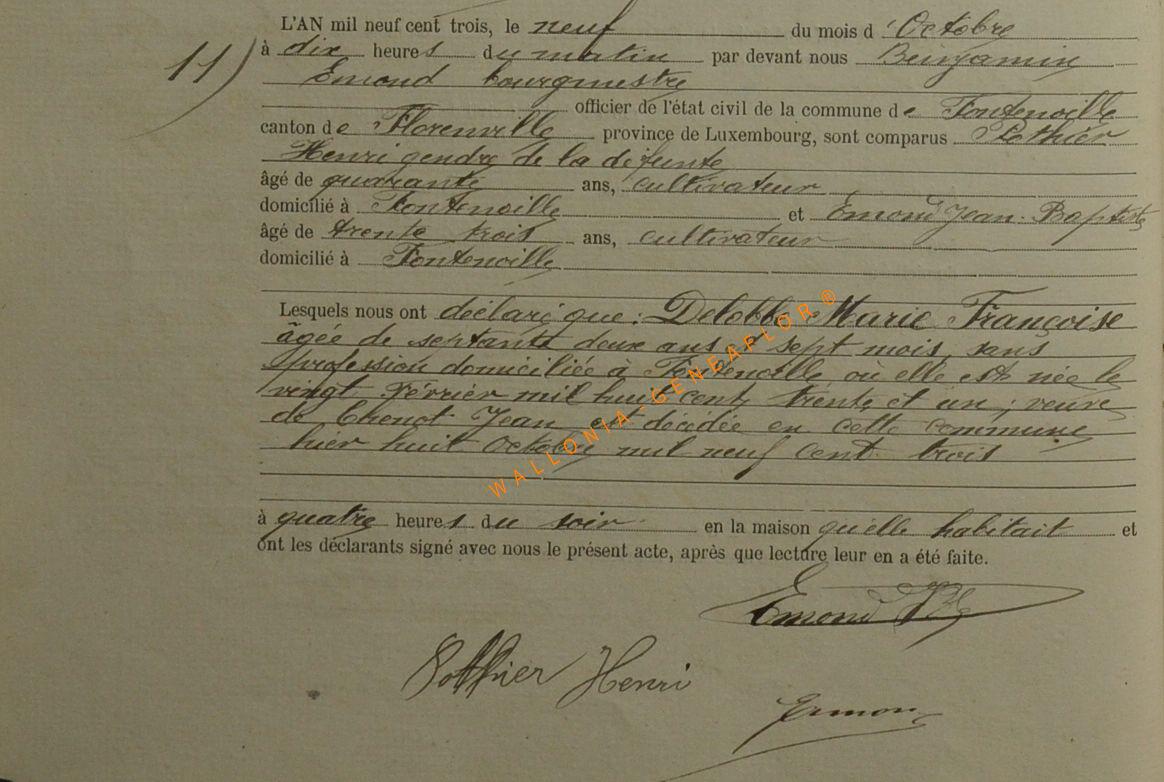 L'AN mil neuf cent trois, le neuf du mois d'Octobre
11) à dix heures du matin par devant nous Benjamin
Emond bourgmestre
officier de l'état civil de la commune de Fontenoille
canton de Florenville province de Luxembourg, sont comparus Pothier
Henri gendre de la défunte
âgé de quarante ans, cultivateur
domicilié à Fontenoille et Emond Jean-Baptiste
âgé de trente trois ans, cultivateur
domicilié à Fontenoille
Lesquels nous ont déclaré que: Delobbe Marie Françoise
âgée de septante deux ans et sept mois, sans
profession domiciliée à Fontenoille où elle est née le
vingt Février mil huit cent trente et un; veuve
de Chenot Jean est décédée en cette commune
hier huit Octobre mil neuf cent trois
WALLONIA-GENEAFLOR®
à quatre heures du soir en la maison qu'elle habitait et
ont les déclarants signé avec nous le présent acte, après que lecture leur en a été faite.
Emond JB
Pothier Henri
Emond